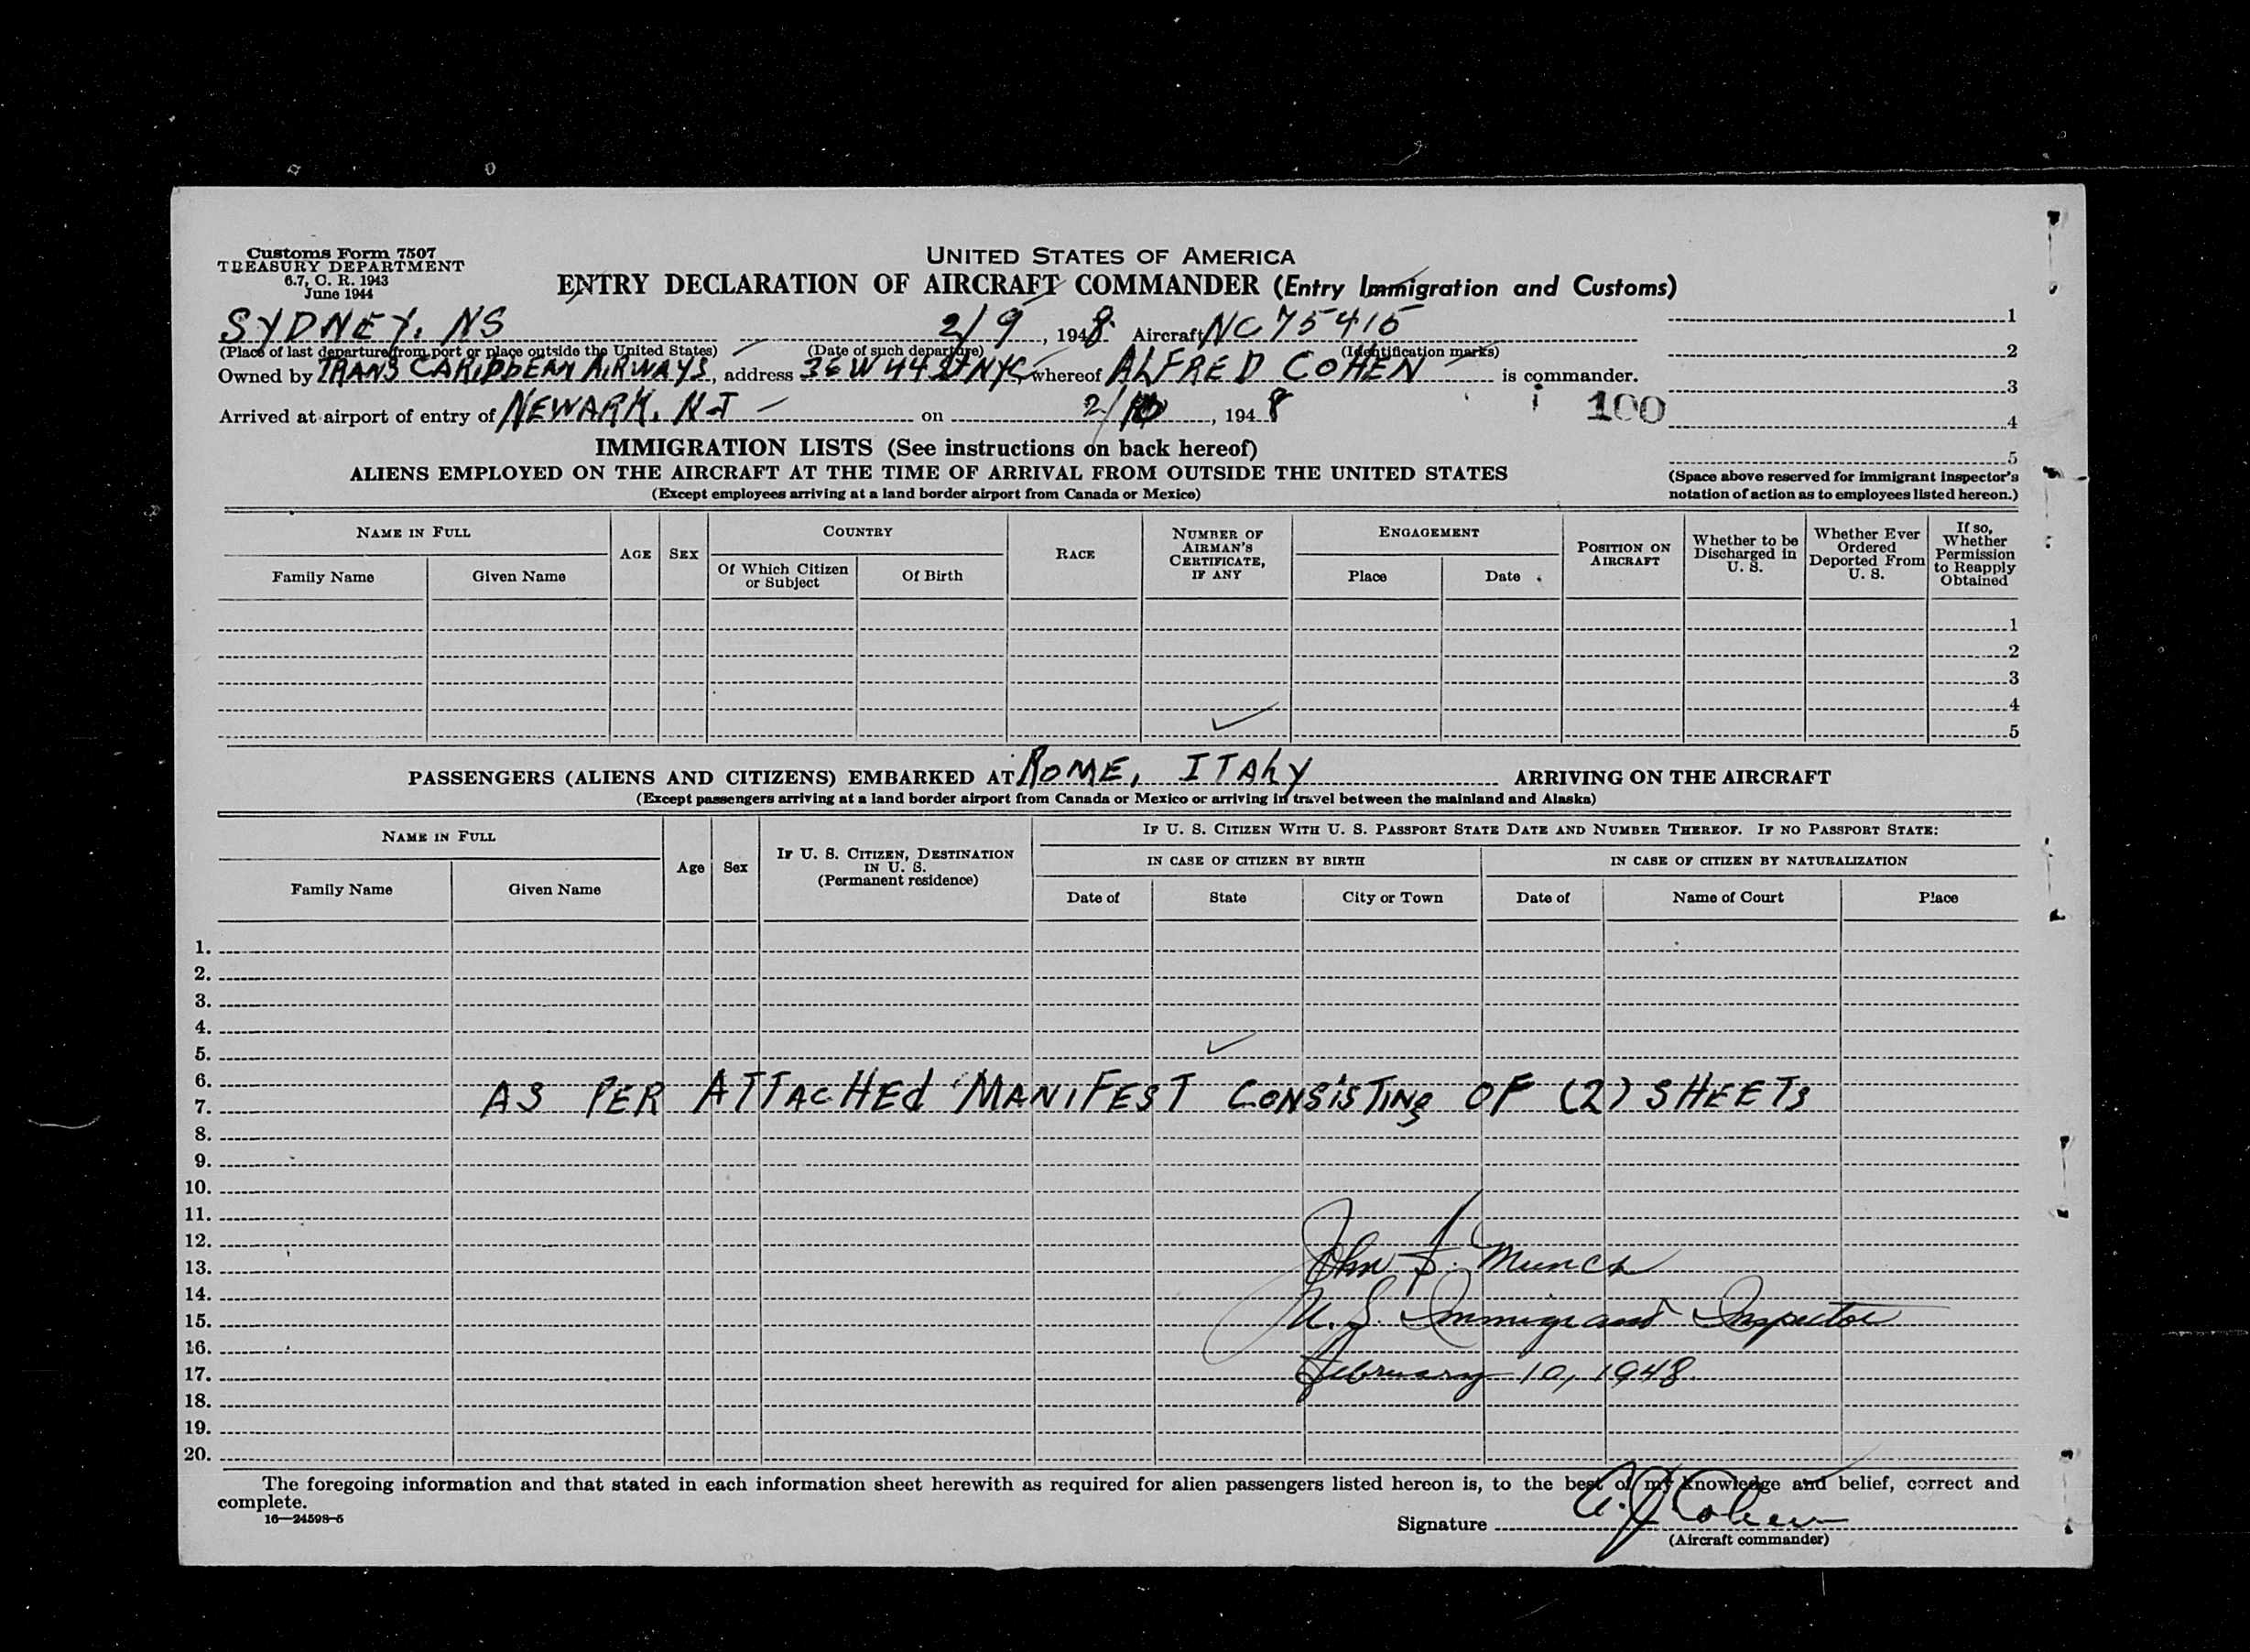 Customs Form 7507
TREASURY DEPARTMENT
6.7, C. R. 1943
June 1944
UNITED STATES OF AMERICA
ENTRY DECLARATION OF AIRCRAFT COMMANDER (Entry Immigration and Customs)
SYDNEY, NS 2/9, 1948. Aircraft NC 75415
(Place of last departure from port or place outside the United States) (Date of such departure) (Identification marks)
Owned by TRANS CARIBBEAN AIRWAYS, address 36 W 44 ST NYC, whereof ALFRED COHEN is commander.
Arrived at airport of entry of NEWARK, N-J on 2/10, 1948
100
1
2
3
4
5
(Space above reserved for immigrant inspector's
notation of action as to employees listed hereon.)
IMMIGRATION LISTS (See instructions on back hereof)
ALIENS EMPLOYED ON THE AIRCRAFT AT THE TIME OF ARRIVAL FROM OUTSIDE THE UNITED STATES
(Except employees arriving at a land border airport from Canada or Mexico)
NAME IN FULL
Family Name
Given Name
AGE
SEX
COUNTRY
Of Which Citizen
or Subject
Of Birth
RACE
NUMBER OF
AIRMAN'S
CERTIFICATE,
IF ANY
ENGAGEMENT
Place
Date
POSITION ON
AIRCRAFT
Whether to be
Discharged in
U. S.
Whether Ever
Ordered
Deported From
U. S.
If so,
Whether
Permission
to Reapply
Obtained
1
2
3
4
5
PASSENGERS (ALIENS AND CITIZENS) EMBARKED AT ROME, ITALY ARRIVING ON THE AIRCRAFT
(Except passengers arriving at a land border airport from Canada or Mexico or arriving in travel between the mainland and Alaska)
NAME IN FULL
Family Name
Given Name
Age
Sex
IF U. S. CITIZEN, DESTINATION
IN U. S.
(Permanent residence)
IF U. S. CITIZEN WITH U. S. PASSPORT STATE DATE AND NUMBER THEREOF. IF NO PASSPORT STATE:
IN CASE OF CITIZEN BY BIRTH
Date of
State
City or Town
IN CASE OF CITIZEN BY NATURALIZATION
Date of
Name of Court
Place
1.
2.
3.
4.
5.
6.
7.
AS PER ATTACHEd MANIFEST CONSISTING OF (2) SHEETS
8.
9.
10.
11.
12.
13.
John F. Munch
14.
15.
U. S. Immigrant Inspector
16.
17.
February 10, 1948.
18.
19.
20.
The foregoing information and that stated in each information sheet herewith as required for alien passengers listed hereon is, to the best of my knowledge and belief, correct and
complete.
16—24598-5
Signature A. J. Cohen
(Aircraft commander)